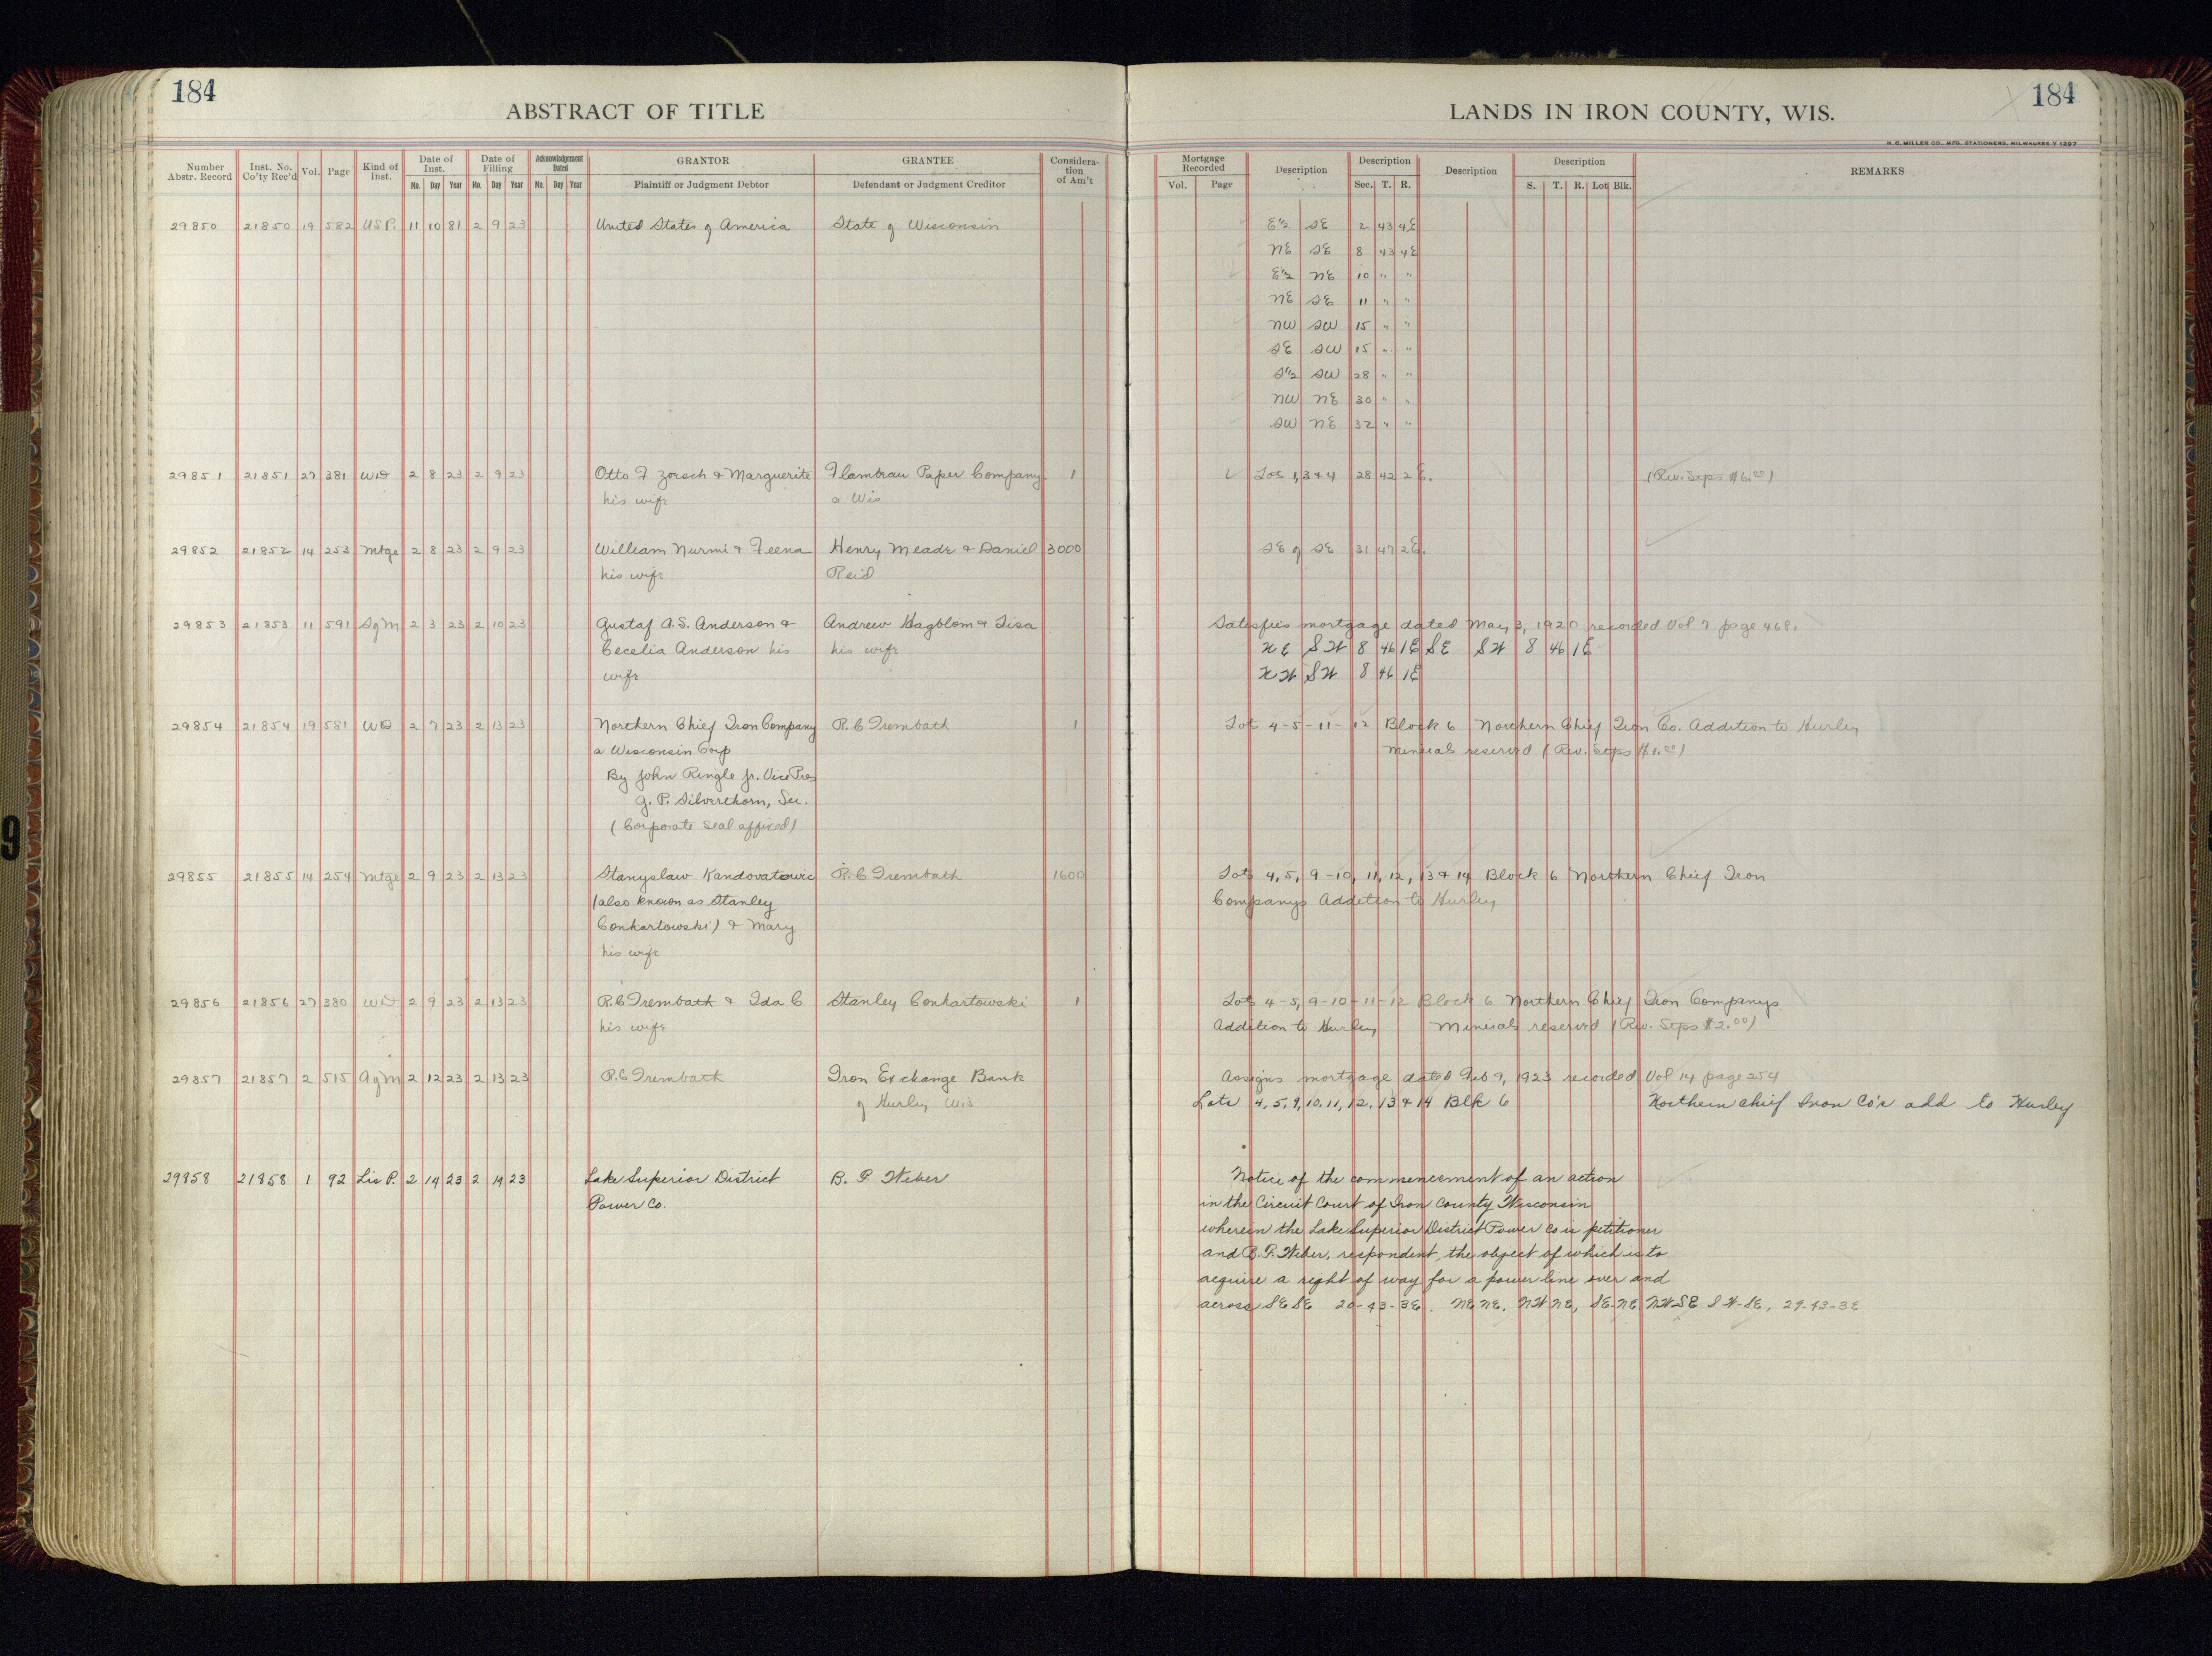 184
ABSTRACT OF TITLE
Number Abstr. Record Inst. No. Co'ty Rec'd Vol. Page Kind of Inst. Date of Inst. Mo. Day Year Date of Filling Mo. Day Year Acknowledgement Dated Mo. Day Year GRANTOR Plaintiff or Judgment Debtor GRANTEE Defendant or Judgment Creditor Considera-tion of Am't
29850 21850 19 582 USP. 11 10 81 2 9 23 United States of America State of Wisconsin
29851 21851 27 381 WD 2 8 23 2 9 23 Otto F Zorsch & Marguerite Flambeau Paper Company 1
his wife a Wis
29852 21852 14 253 Mtge 2 8 23 2 9 23 William Nurmi & Feena Henry Meade & Daniel 3000
his wife Reid
29853 21853 11 591 SgM 2 3 23 2 10 23 Gustaf A.S. Anderson & Andrew Hagblom & Lisa
Cecelia Anderson his his wife
wife
29854 21854 19 581 WD 2 7 23 2 13 23 Northern Chief Iron Company R.C Trembath 1
a Wisconsin Corp
By John Ringle Jr. Vice Pres
G. P. Silverthorn, Sec.
(Corporate seal affixed)
29855 21855 14 254 Mtge 2 9 23 2 13 23 Stanyslaw Kandovatowic R.C Trembath 1600
(also known as Stanley
Conhartowski) & Mary
his wife
29856 21856 27 380 WD 2 9 23 2 13 23 R.C Trembath & Ida C Stanley Conhartowski 1
his wife
29857 21857 2 515 AgM 2 12 23 2 13 23 R.C Trembath Iron Exchange Bank
of Hurley Wis
29858 21858 1 92 Lis P. 2 14 23 2 14 23 Lake Superior District B. F. Weber
Power Co.
184
LANDS IN IRON COUNTY, WIS.
H. C. MILLER CO., MFG. STATIONERS, MILWAUKEE
Mortgage Recorded Vol. Page Description Description Sec. T. R. Description Description S. T. R. Lot Blk. REMARKS
E½ SE 2 43 4E
NE SE 8 43 4E
E½ NE 10 " "
NE SE 11 " "
NW SW 15 " "
SE SW 15 " "
S½ SW 28 " "
NW NE 30 " "
SW NE 32 " "
Lots 1, 3 & 4 28 42 2 E. (Rev. Stps $6.00)
SE of SE 31 47 2E.
Satisfies mortgage dated May 3, 1920 recorded Vol 7 page 468.
NE SW 8 46 1E SE SW 8 46 1E
NW SW 8 46 1E
Lot 4-5-11-12 Block 6 Northern Chief Iron Co. Addition to Hurley
Minerals reserved (Rev. Stps $1.00)
Lots 4, 5, 9-10, 11, 12, 13 & 14 Block 6 Northern Chief Iron
Companys Addition to Hurley
Lots 4-5, 9-10-11-12 Block 6 Northern Chief Iron Companys
Addition to Hurley Minerals reserved (Rev. Stps $2.00)
Assigns mortgage dated Feb 9, 1923 recorded Vol 14 page 254
Lots 4, 5, 9, 10, 11, 12, 13 & 14 Blk 6 Northern Chief Iron Co's add to Hurley
Notice of the commencement of an action
in the Circuit Court of Iron County Wisconsin
wherein the Lake Superior District Power Co is petitioner
and B. F. Weber, respondent, the object of which is to
acquire a right of way for a power line over and
across SE SE 20-43-3E. NE NE, NW NE, SE-NE, NW SE SW-SE, 29-43-3E